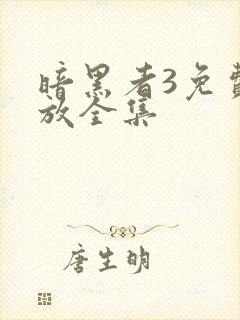 暗黑者3免费
放全集
唐生明